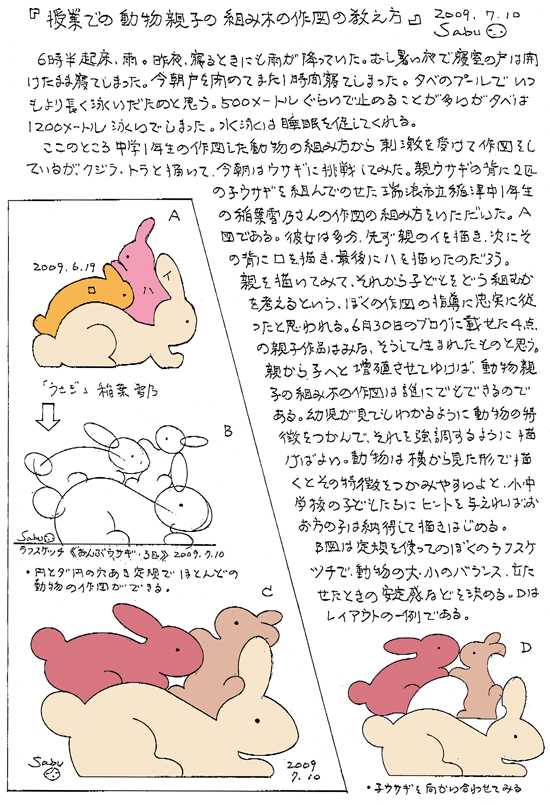 『授業での動物親子の組み木の作図の教え方』 2009.7.10
Sabu
6時半起床、雨。昨夜、寝るときにも雨が降っていた。むし暑い夜で寝室の戸は開
けたまま寝てしまった。今朝戸を閉めてまた1時間寝てしまった。夕べのプールでいつ
もより長く泳いだためと思う。500メートルぐらいで止めることが多いが夕べは
1200メートル泳いでしまった。水泳は睡眠を促してくれる。
ここのところ中学1年生の作図した動物の組み方から刺激を受けて作図をし
ているが、クジラ、トラと描いて、今朝はウサギに挑戦してみた。親ウサギの背に2匹
の子ウサギを組んでのせた瑞浪市立稲津中1年生
の稲葉雪乃さんの作図の組み方をいただいた。A
図である。彼女は多分、先ず親のイを描き、次にそ
の背に口を描き、最後にハを描いたのだろう。
親を描いてみて、それから子どもをどう組むか
を考えるという、ぼくの作図の指導に忠実に従
ったと思われる。6月30日のブログに載せた4点
の親子作品はみな、そうして生まれたものと思う。
親から子へと増殖させてゆけば、動物親
子の組み木の作図は誰にでもできるので
ある。幼児が見てもわかるように動物の特
徴をつかんで、それを強調するように描
けばよい。動物は横から見た形で描
くとその特徴をつかみやすいよと、小中
学校の子どもたちにヒントを与えればお
お方の子は納得して描きはじめる。
B図は定規を使ってのぼくのラフスケ
ッチで、動物の大・小のバランス、立た
せたときの安定感などを決める。Dは
レイアウトの一例である。
A
2009.6.19
イ
ロ
ハ
「うさぎ」稲葉雪乃
B
Sabu
ラフスケッチ《おんぶウサギ・3匹》2009.7.10
・円とダ円の穴あき定規でほとんどの
動物の作図ができる。
C
Sabu
2009
7.10
D
・子ウサギを向かい合わせてみる